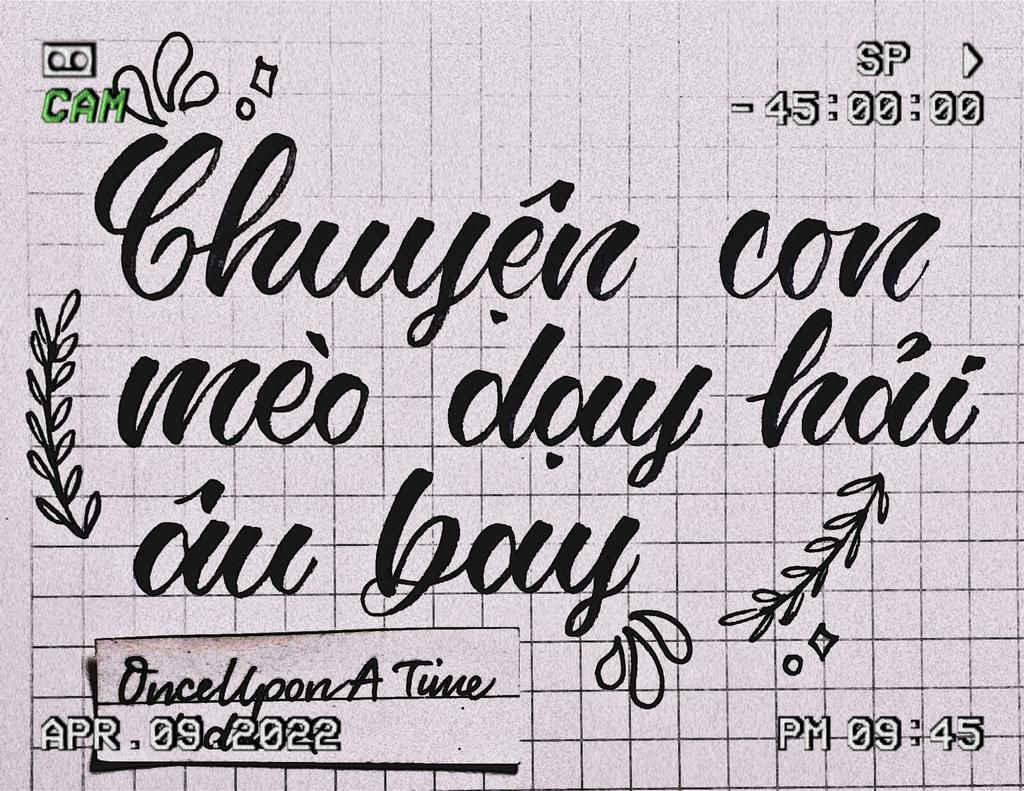 SP
CAM
-45:00:00
Chuyện con
mèo dạy hải
âu bay
OnceUpon A Time
APR.09 2022
PM 09:45